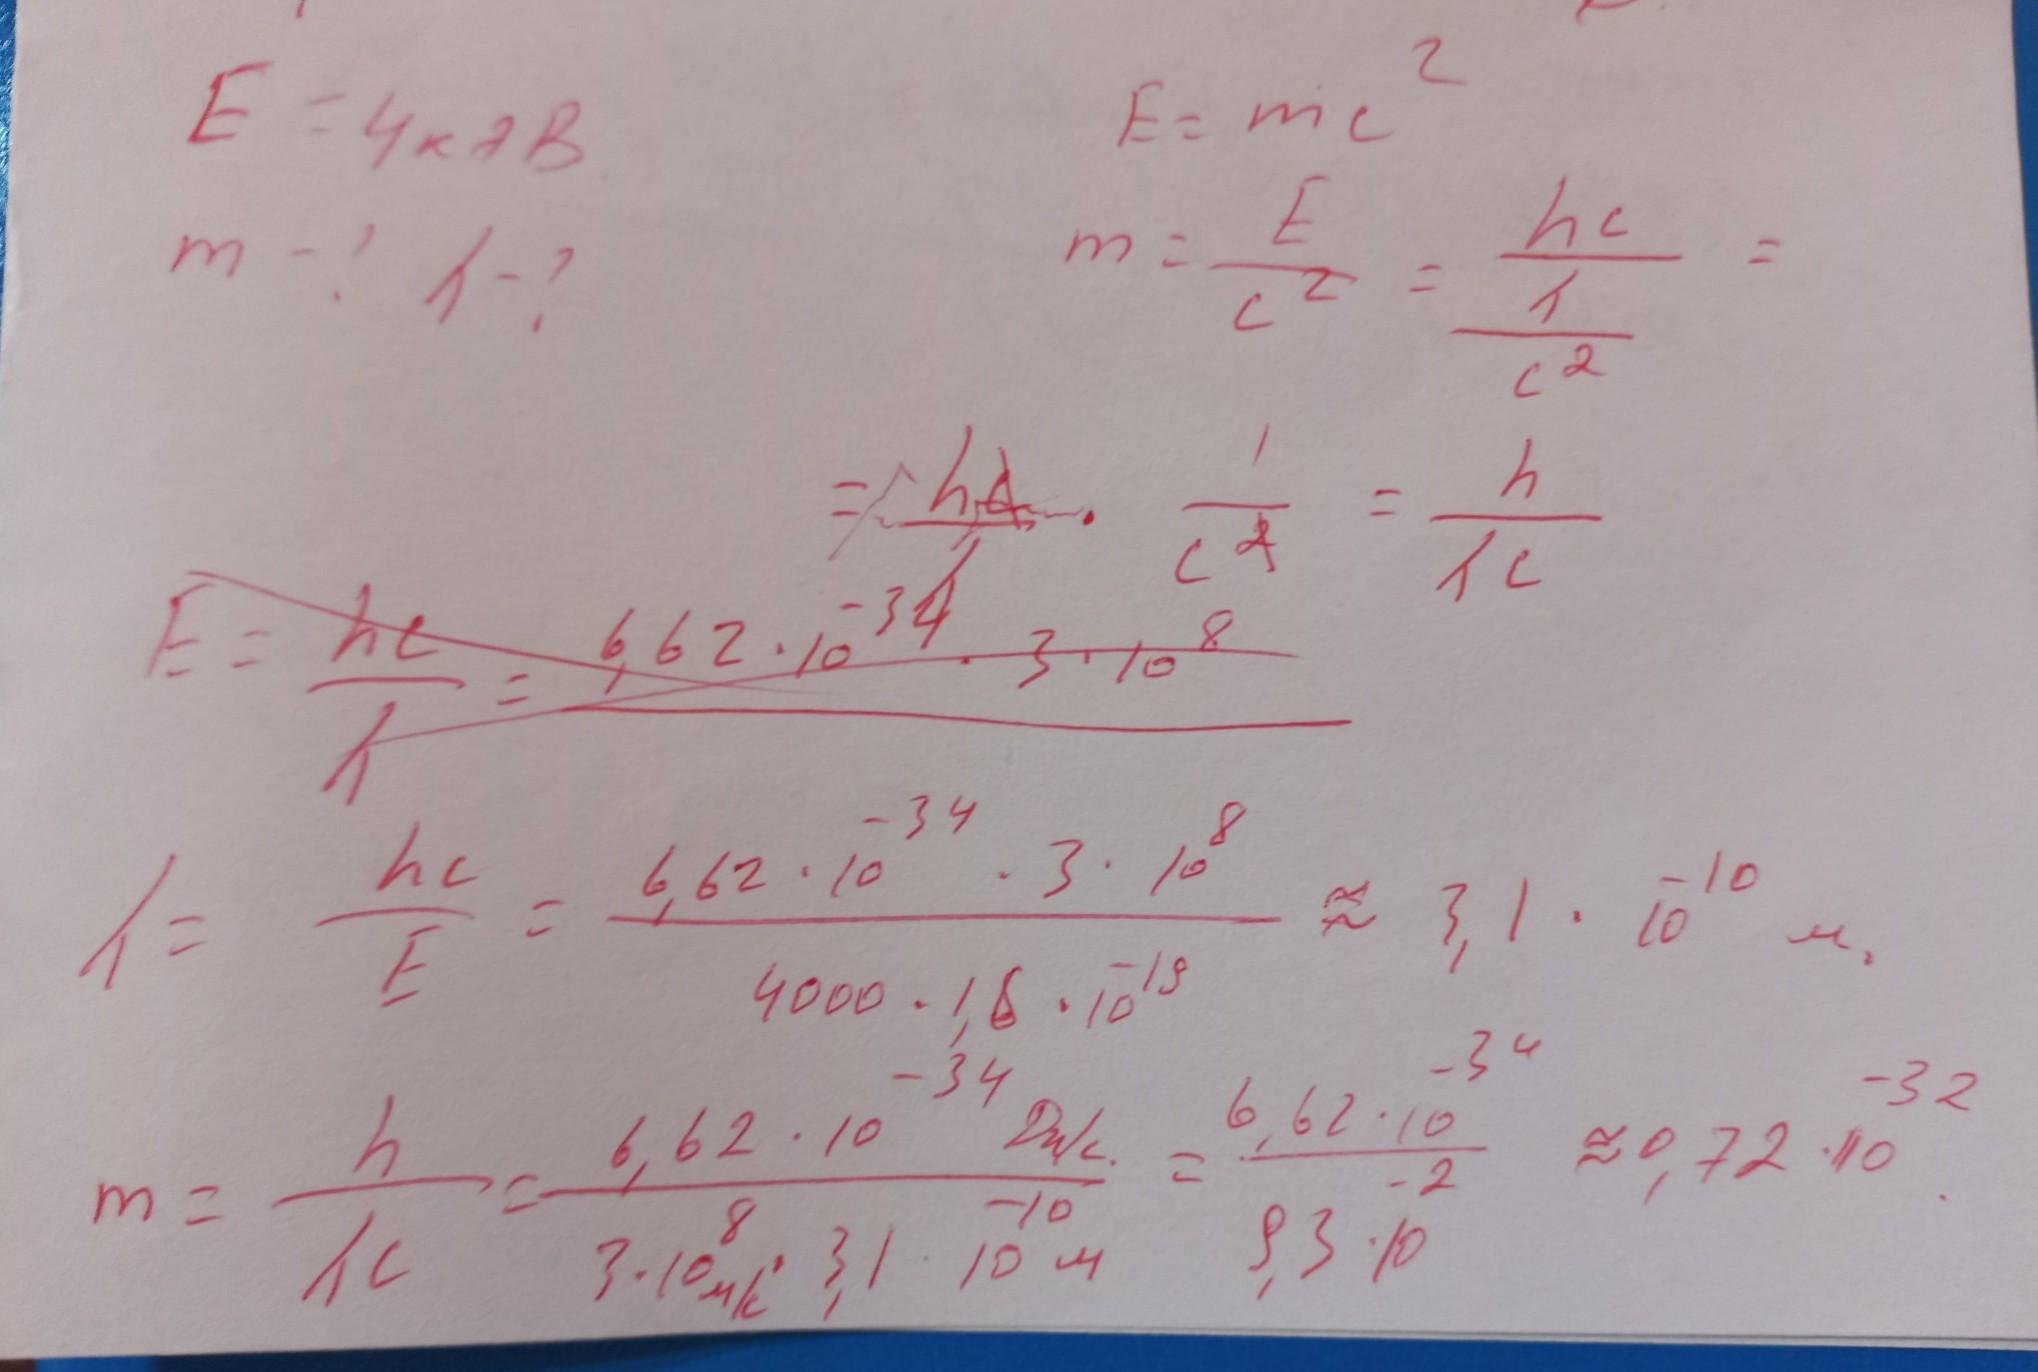 E = 4кэВ
E = mc²
m - ? λ - ?
m = E/c² = hc/λ/c² =
= hc/λ · 1/c² = h/λc
E = hc/λ = 6,62·10⁻³⁴ · 3·10⁸
λ = hc/E = 6,62·10⁻³⁴ · 3·10⁸ / 4000·1,6·10⁻¹⁹ ≈ 3,1·10⁻¹⁰ м.
m = h/λc = 6,62·10⁻³⁴ Дж/с / 3·10⁸ м/с · 3,1·10⁻¹⁰ м = 6,62·10⁻³⁴ / 9,3·10⁻² ≈ 0,72·10⁻³².